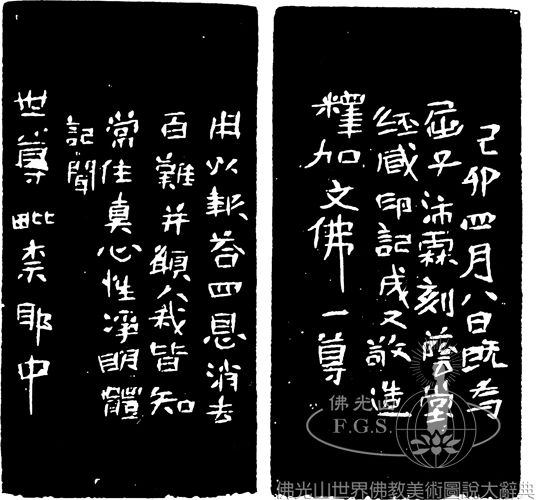 己卯四月八日既為
沛霖刻蔭堂
經藏印記成又敬造
釋加文佛一尊
用以報答四恩消去
百難并願人我皆知
常住真心性淨明體
記聞
世尊毗柰耶中
佛光山
F.G.S.
佛光山世界佛教美術圖說大辭典